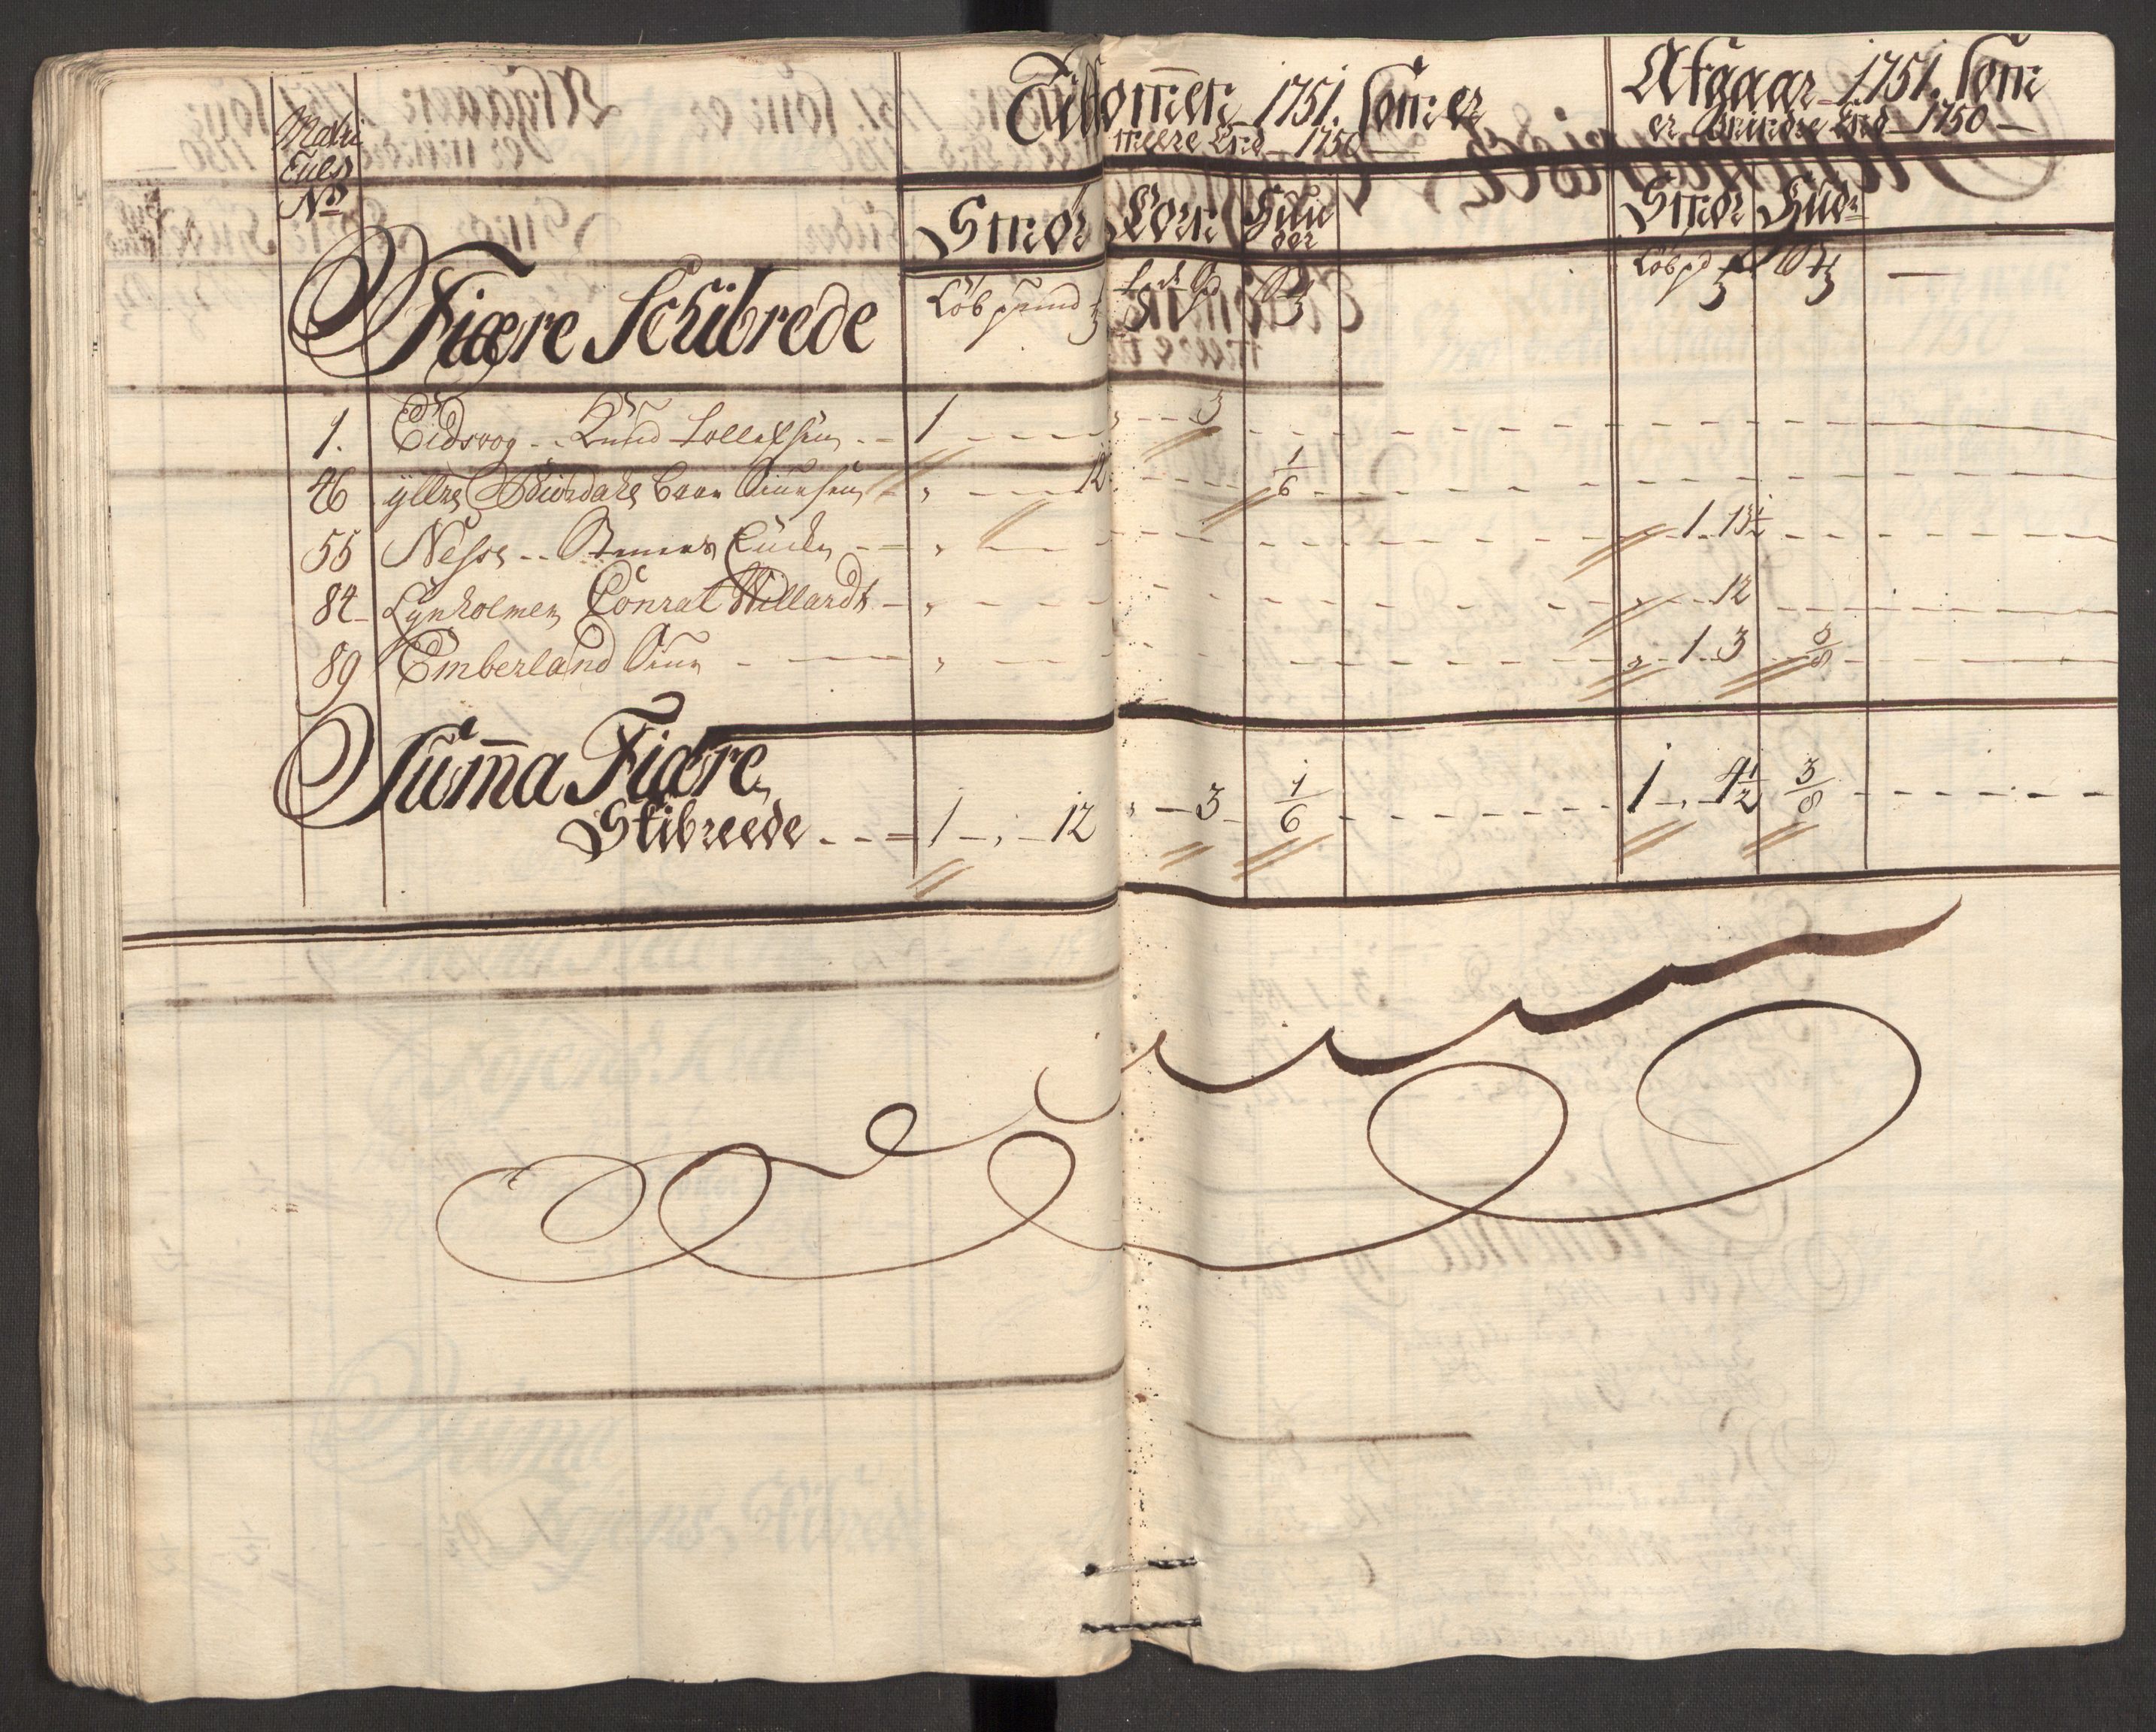 Matri
Culs
No
Tilkommen 1751. som er
meere End 1750
Afgaar 1751. som
er mindre End 1750
Smør Korn Huu
der
Smør Hud:
Fiære Schibrede
Löb pund
Löb pd
1. Eidsvog Knud Tollefsen 1 3
46 yttre 12 1/6
55 Nesse 1. 13 1/2
84 Lynholmen Conrat Willardt 12
89 Emberland 1. 3 3/8
Summa Fiære
Skibreede 1 12 3 1/6 1 4 1/2 3/8